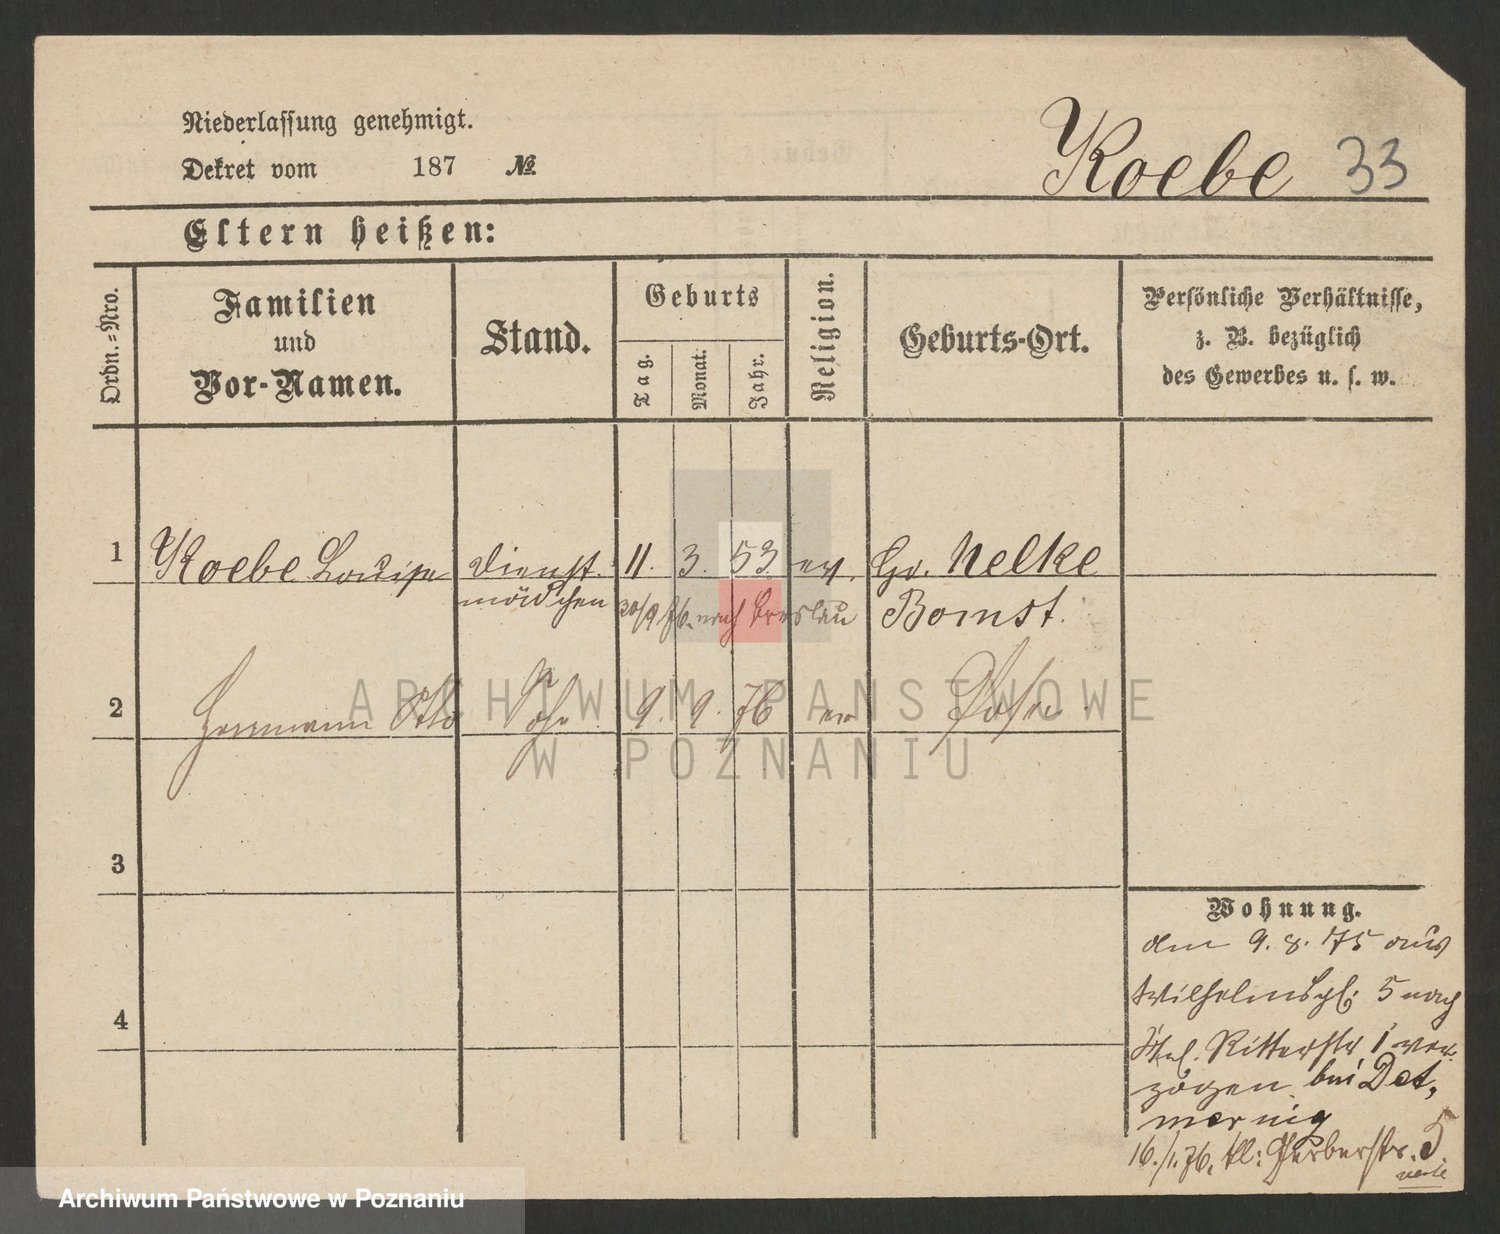 Niederlassung genehmigt.
Dekret vom 187 №
Koebe 33
Eltern heißen:
Ordn.=Nro.
Familien
und
Vor-Namen.
Stand.
Geburts
Tag.
Monat.
Jahr.
Religion.
Geburts-Ort.
Persönliche Verhältnisse,
z. B. bezüglich
des Gewerbes u. s. w.
1 Koebe Louise Dienst. 11. 3. 53 ev. Gr. Nelke
mädchen 30/9 76. nach Breslau Bomst.
2 Herrmann Otto Sohn 9. 9. 76 ev Posen
ARCHIWUM PAŃSTWOWE
W POZNANIU
3
4
Wohnung.
den 9. 8. 75 aus
Wilhelmspl. 5 nach
Ritterstr. 1 ver-
zogen bei
16./1. 76. kl: Gerberstr. 5
verte
Archiwum Państwowe w Poznaniu